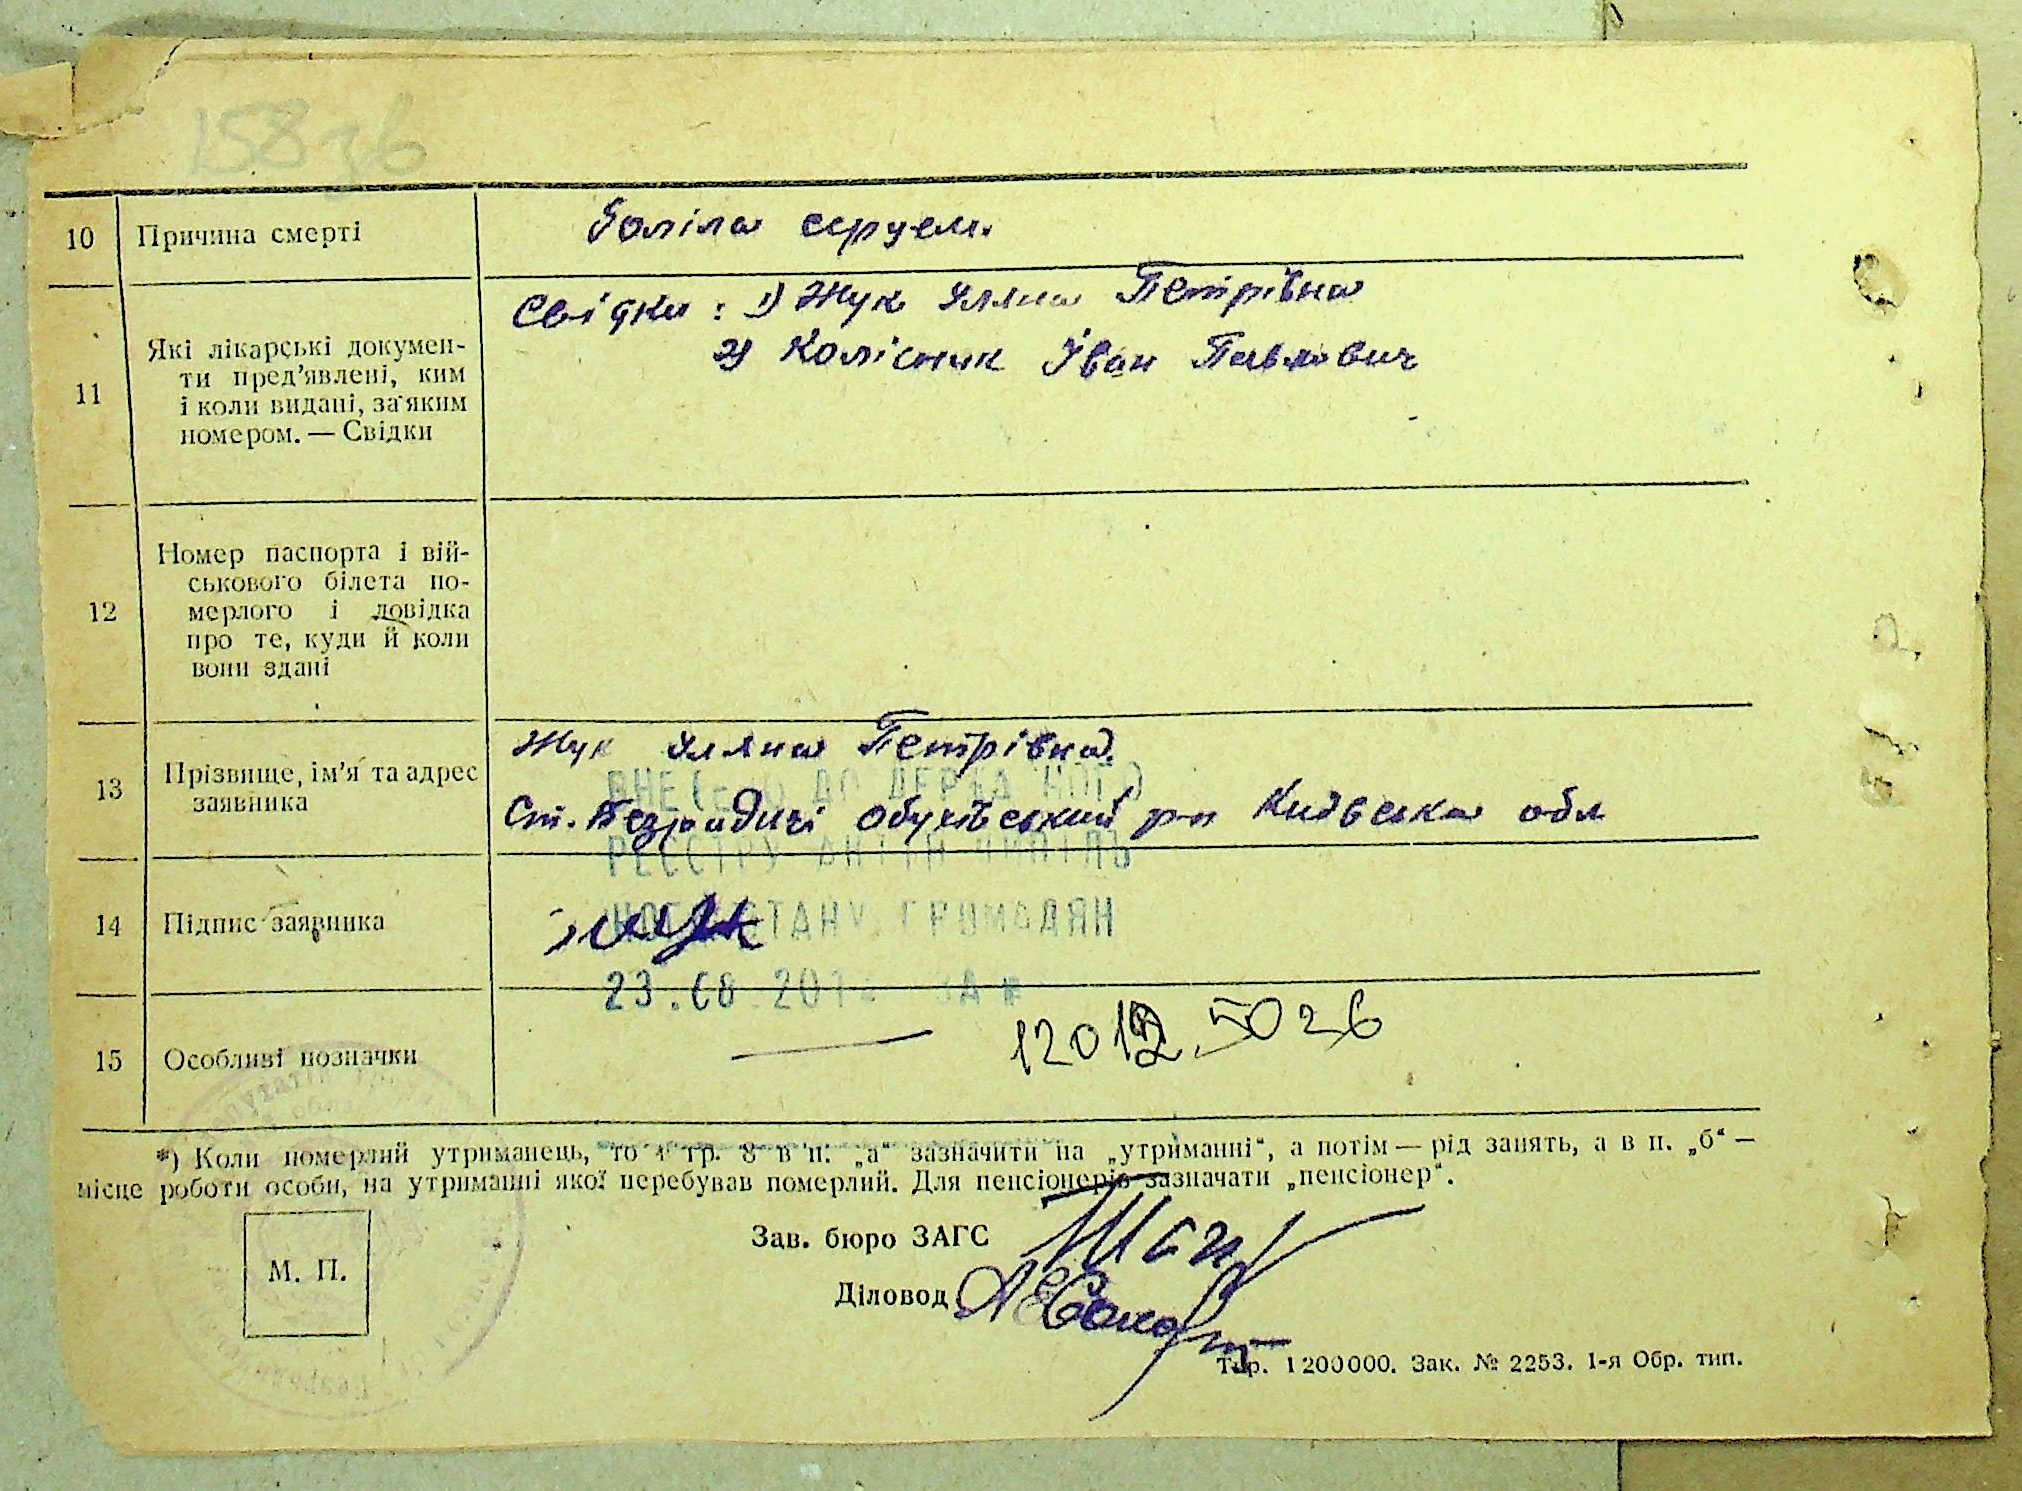 158зб
10 Причина смерті
Боліла серцем.
11 Які лікарські докумен-
ти пред’явлені, ким
і коли видані, за яким
номером. — Свідки
Свідки: 1) Жук Уляна Петрівна
2) Колісник Іван Павлович
12 Номер паспорта і вій-
ськового білета по-
мерлого і довідка
про те, куди й коли
вони здані
13 Прізвище, ім’я та адрес
заявника
Жук Уляна Петрівна.
Ст. Безрадичі Обухівський р-н Київська обл
ДО ДЕРЖА НОГО
РЕЄСТРУ АКТІВ
СТАНУ ГРОМАДЯН
23.08.2012 ЗА №
14 Підпис заявника
Жук
15 Особливі позначки
— 12012 5026
*) Коли померлий утриманець, то в гр. 8 в п. „а“ зазначити на „утриманні“, а потім — рід занять, а в п. „б“ —
місце роботи особи, на утриманні якої перебував померлий. Для пенсіонерів зазначати „пенсіонер“.
М. П.
Зав. бюро ЗАГС
Діловод
Тир. 1200000. Зак. № 2253. 1-я Обр. тип.